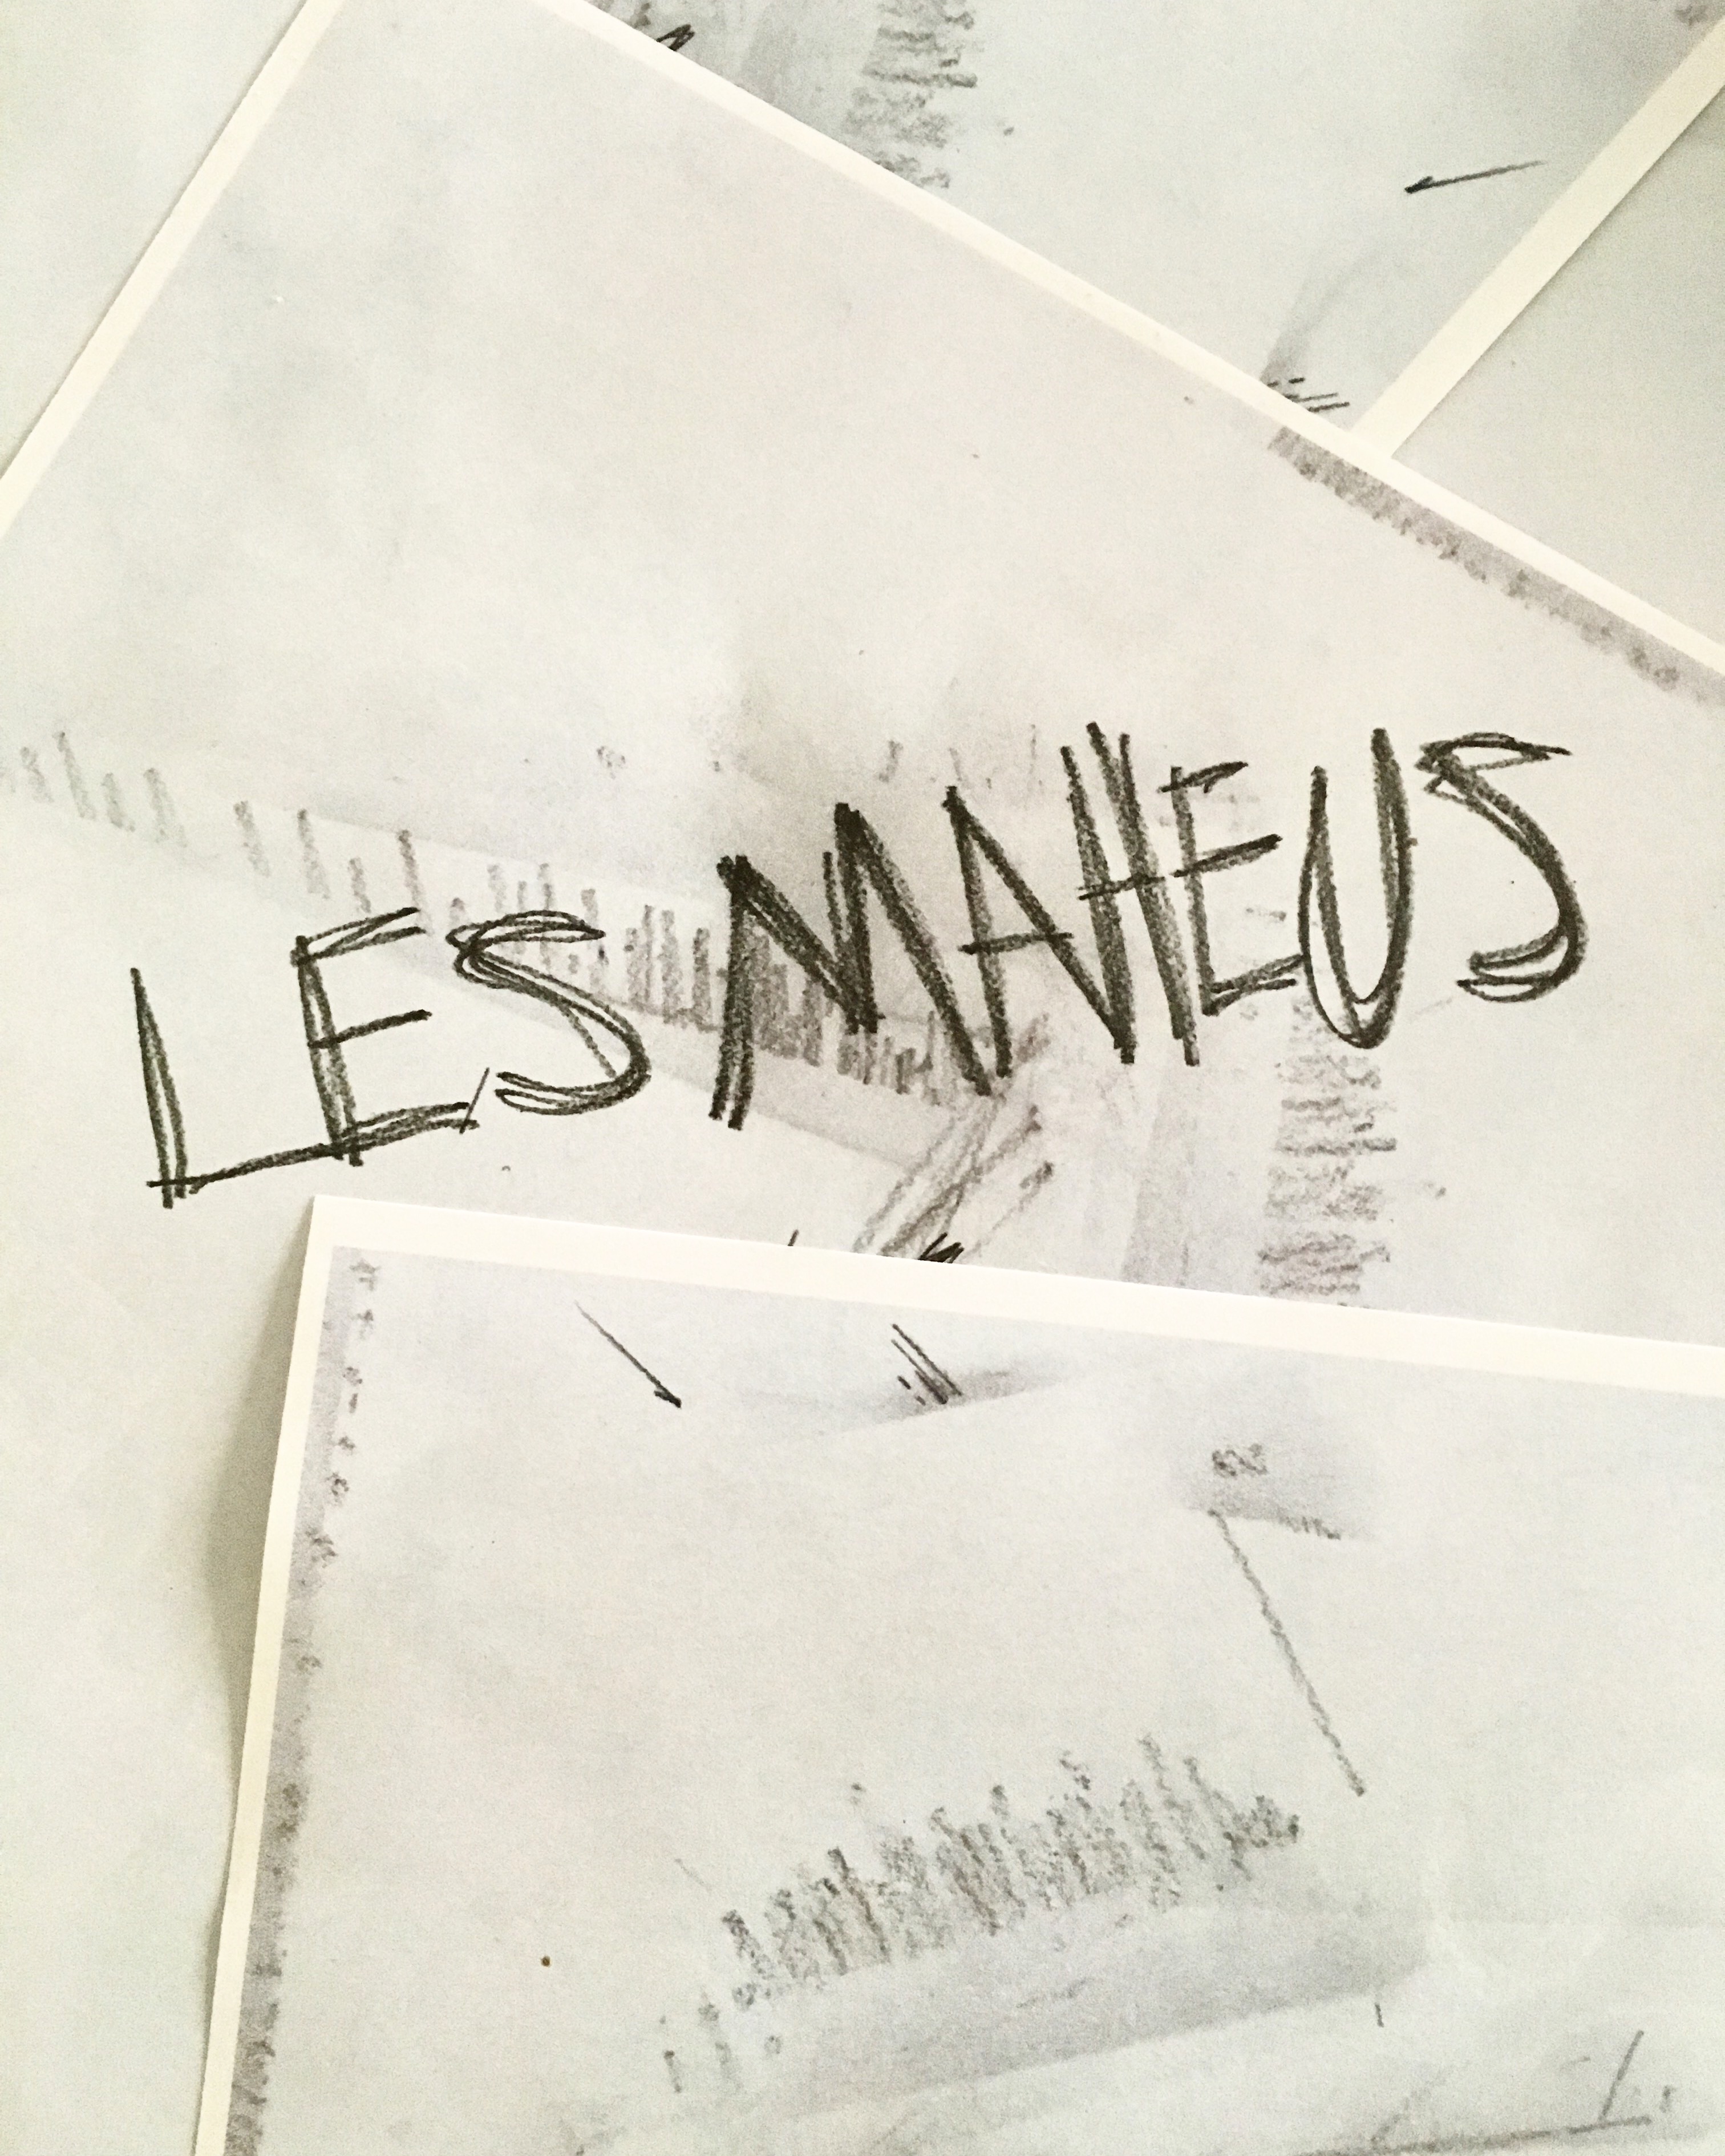 LES MAHEUS